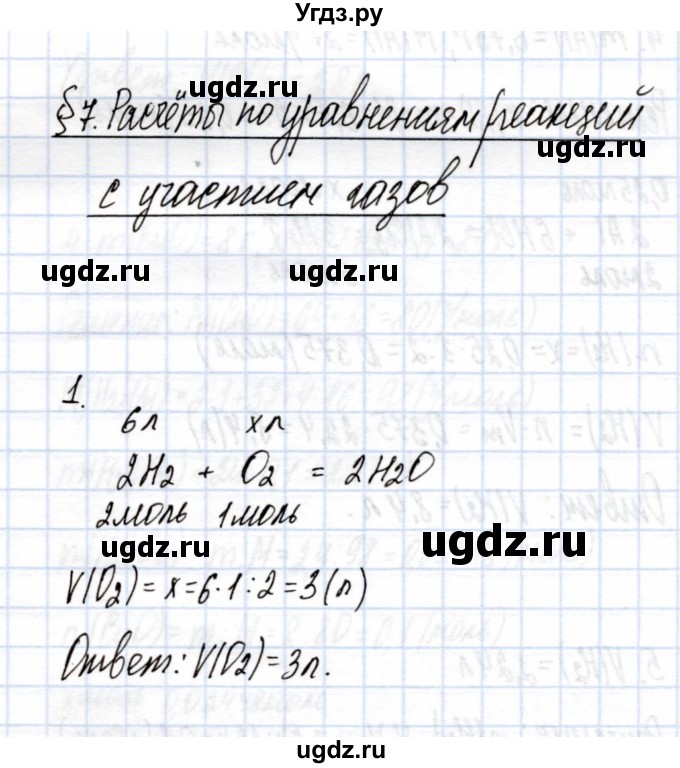 Угдз.ру
ugdz.ru
§7. Расчёты по уравнениям реакций
ugdz.ru
с участием газов
ugdz.ru ugdz.ru
1.
6л хл
2H2 + O2 = 2H2O
2моль 1моль
ugdz.ru ugdz.ru
V(O2) = x = 6·1:2 = 3(л)
Ответ: V(O2) = 3л.
ugdz.ru ugdz.ru
ugdz.ru